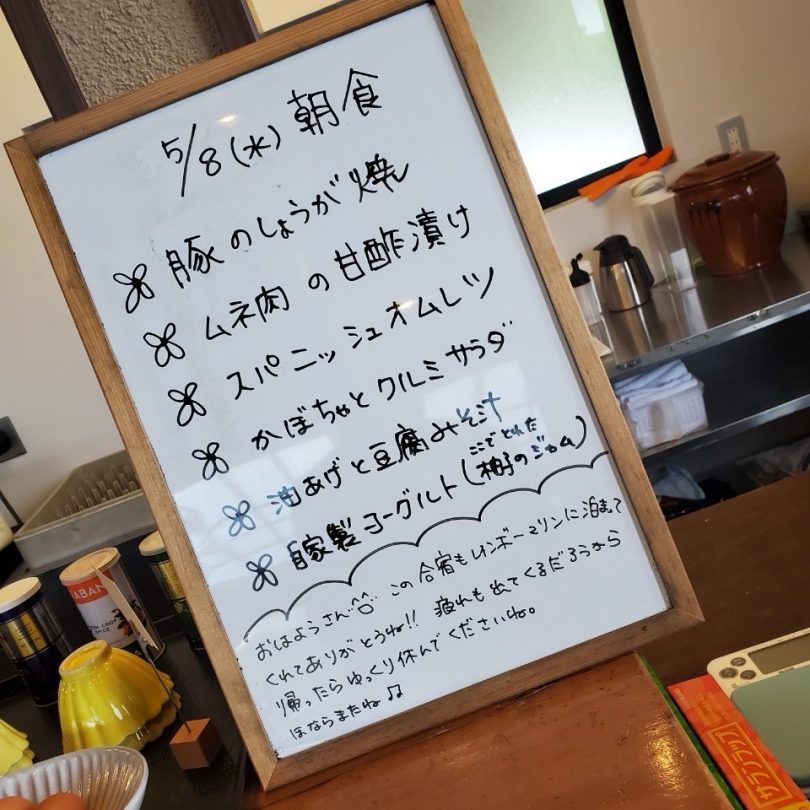 5/8(水) 朝食
豚のしょうが焼
ムネ肉の甘酢漬け
スパニッシュオムレツ
かぼちゃとクルミサラダ
油あげと豆腐みそ汁
自家製ヨーグルト(ここでとれた柚子のジャム)
おはようさん この合宿もレインボーマリンに泊まって
くれてありがとうね!! 疲れも出てくるだろうから
帰ったらゆっくり休んでくださいね。
ほならまたね♫
サランラップ